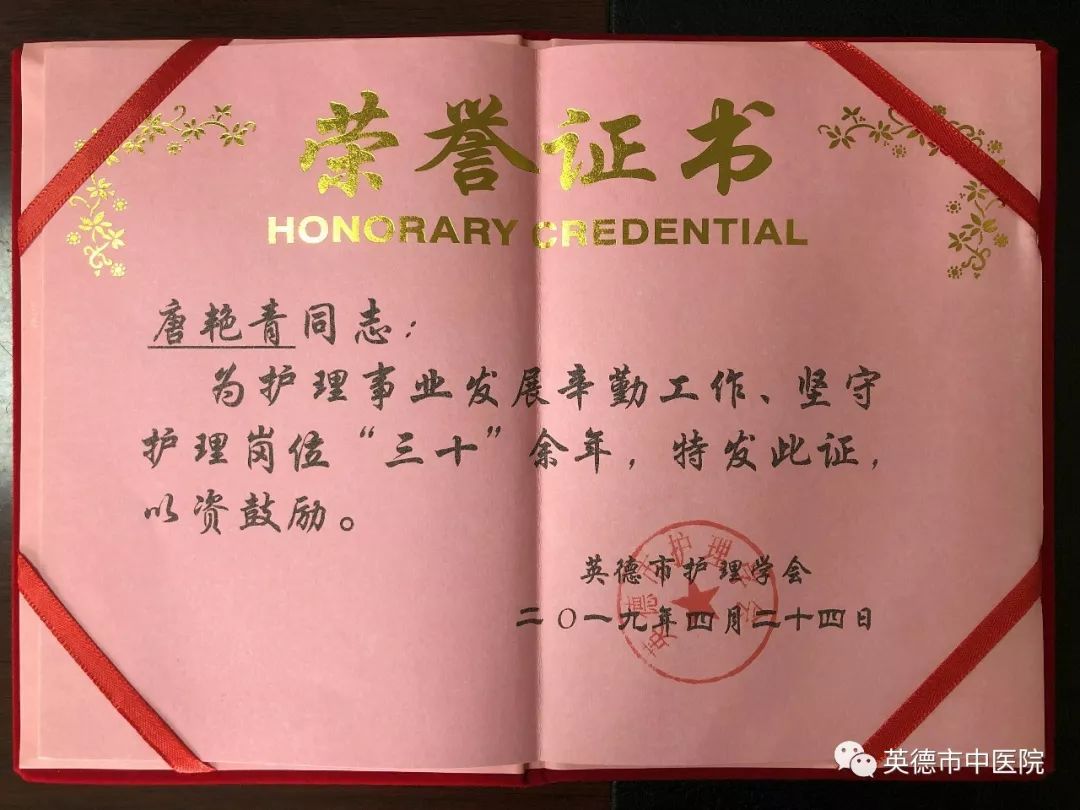 荣誉证书
HONORARY CREDENTIAL
唐艳青同志：
为护理事业发展辛勤工作、坚守
护理岗位“三十”余年，特发此证，
以资鼓励。
英德市护理学会
英德市护理学会
二〇一九年四月二十四日
英德市中医院